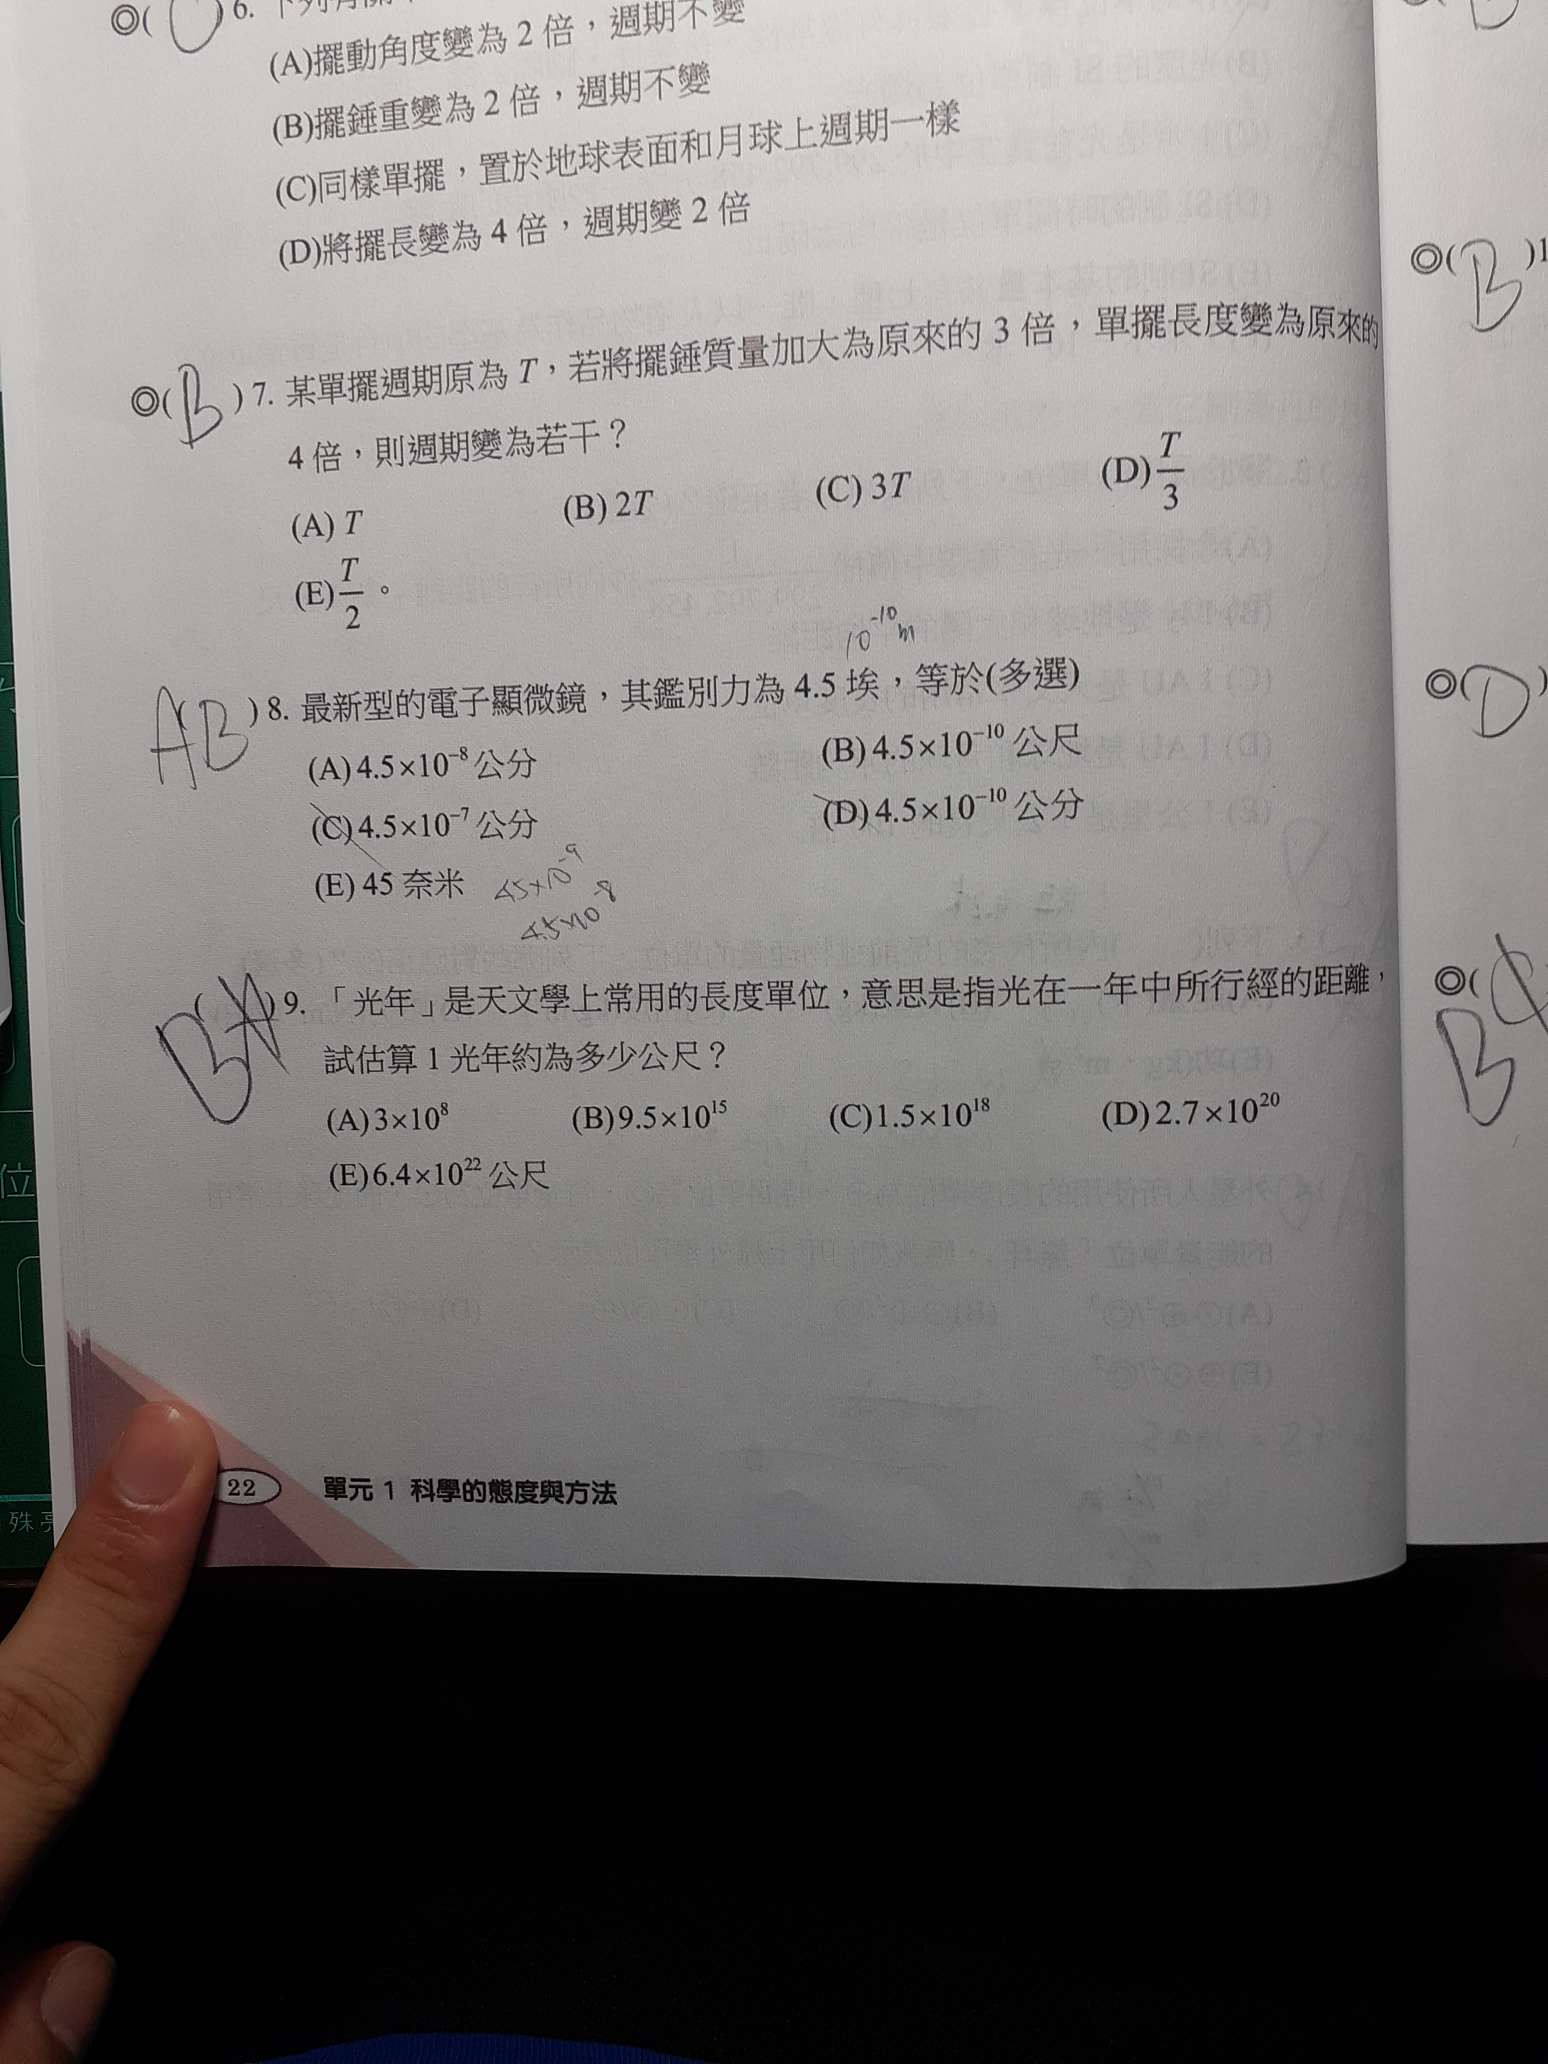 ◎( C ) 6.
(A)擺動角度變為 2 倍，週期不變
(B)擺錘重變為 2 倍，週期不變
(C)同樣單擺，置於地球表面和月球上週期一樣
(D)將擺長變為 4 倍，週期變 2 倍
◎( B ) 7. 某單擺週期原為 T，若將擺錘質量加大為原來的 3 倍，單擺長度變為原來的
4 倍，則週期變為若干？
(A) T (B) 2T (C) 3T (D) T/3
(E) T/2 。
10⁻¹⁰m
( AB ) 8. 最新型的電子顯微鏡，其鑑別力為 4.5 埃，等於(多選)
(A) 4.5×10⁻⁸ 公分 (B) 4.5×10⁻¹⁰ 公尺
(C) 4.5×10⁻⁷ 公分 (D) 4.5×10⁻¹⁰ 公分
(E) 45 奈米 45×10⁻⁹
4.5×10⁻⁸
B( A ) 9. 「光年」是天文學上常用的長度單位，意思是指光在一年中所行經的距離，
試估算 1 光年約為多少公尺？
(A)3×10⁸ (B)9.5×10¹⁵ (C)1.5×10¹⁸ (D)2.7×10²⁰
(E)6.4×10²² 公尺
22 單元 1 科學的態度與方法
◎( B )1
◎( D )
◎(
B
位
殊